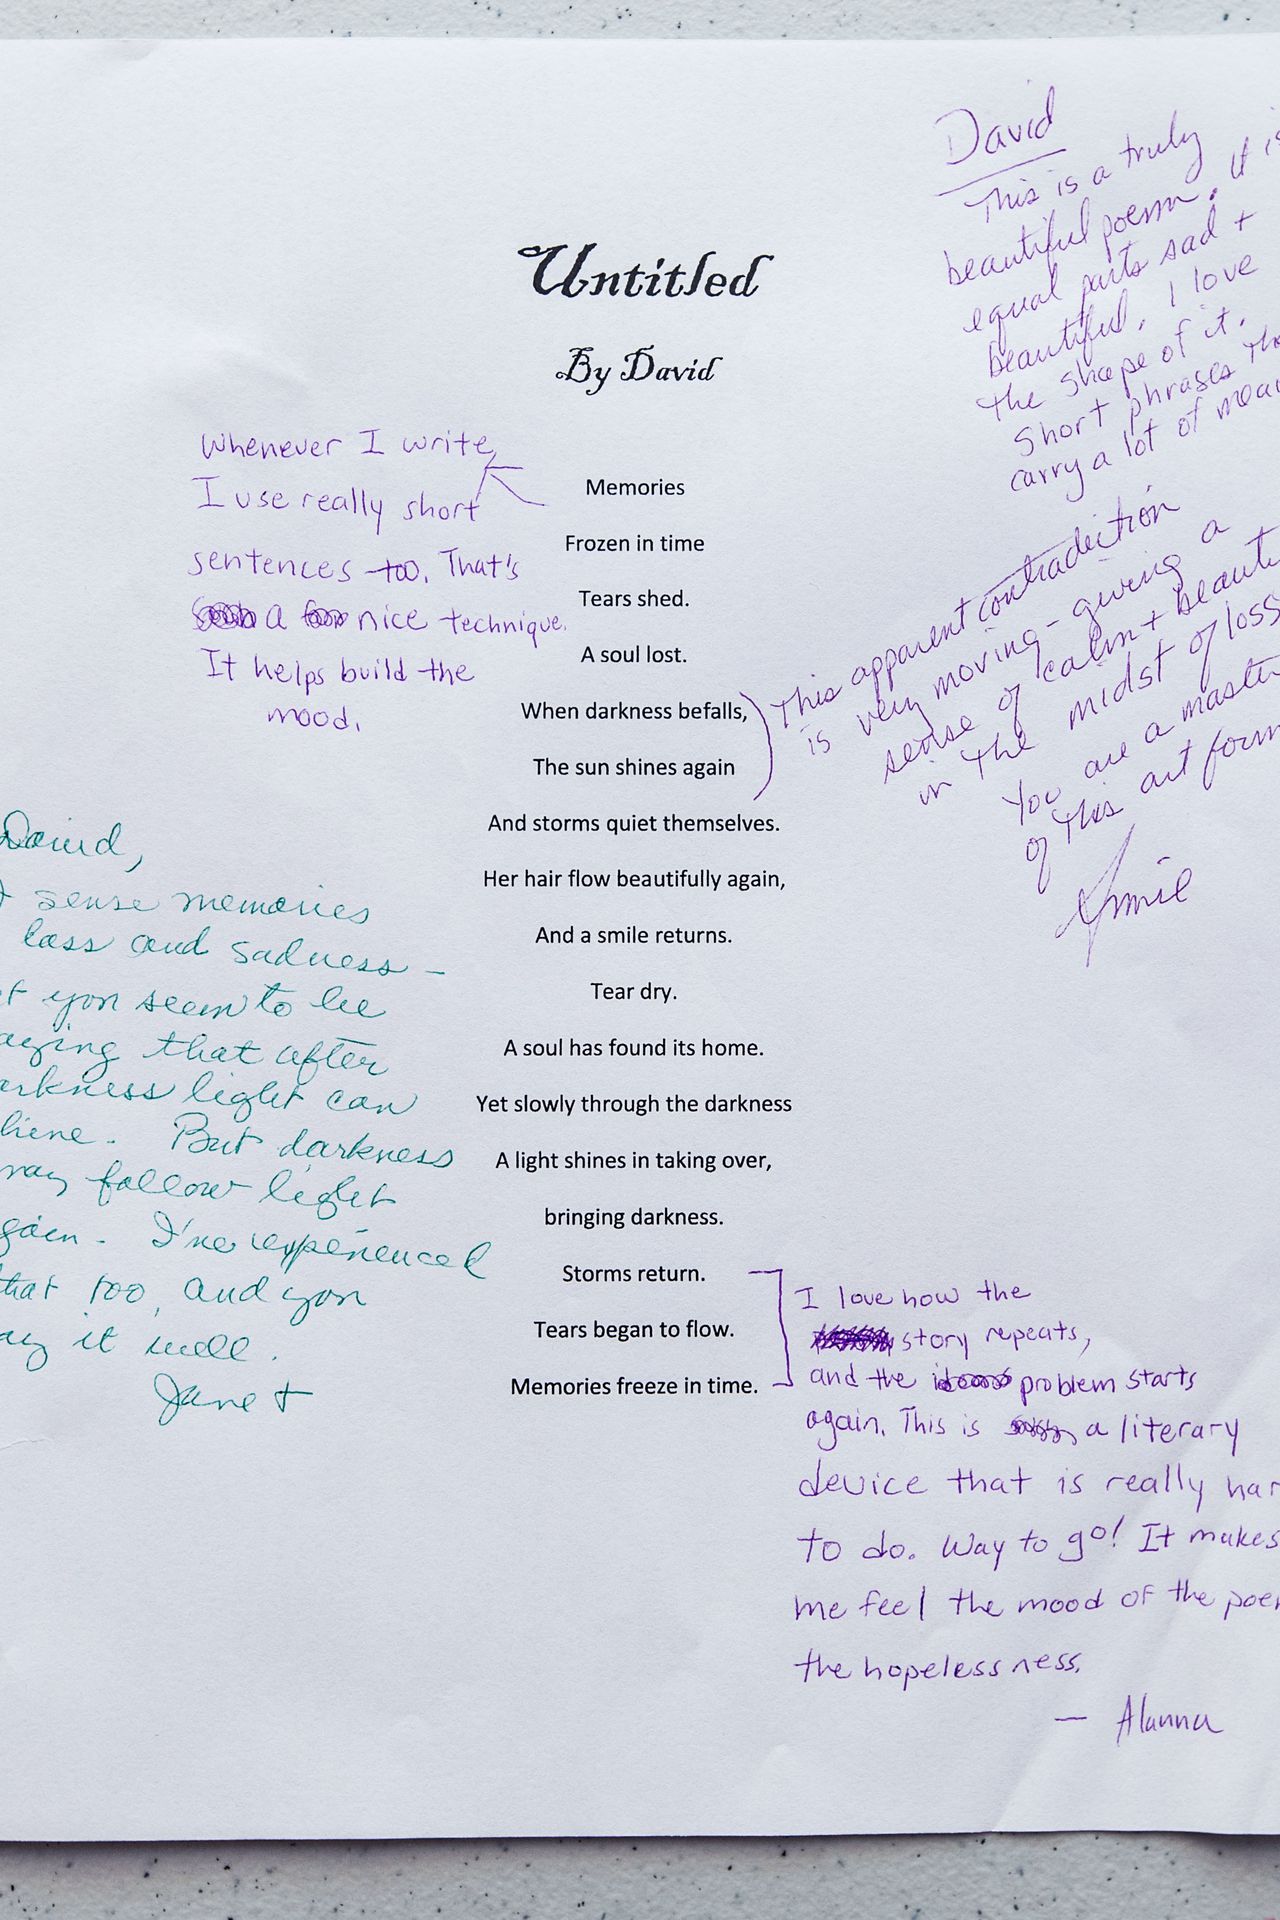 David
This is a truly
beautiful poem. It is
equal parts sad +
beautiful. I love
the shape of it.
Short phrases tha
carry a lot of mean
Untitled
By David
Whenever I write,
I use really short
sentences too. That's
a nice technique.
It helps build the
mood.
Memories
Frozen in time
Tears shed.
A soul lost.
When darkness befalls,
The sun shines again
And storms quiet themselves.
Her hair flow beautifully again,
And a smile returns.
Tear dry.
A soul has found its home.
Yet slowly through the darkness
A light shines in taking over,
bringing darkness.
Storms return.
Tears began to flow.
Memories freeze in time.
This apparent contradiction
is very moving - giving a
sense of calm + beauti
in the midst of loss
You are a master
of this art form
David,
sense memories
loss and sadness -
t you seem to be
aying that after
arkness light can
hine. But darkness
may follow light
gain. I've experienced
hat too, and you
ay it well.
Janet
I love how the
story repeats,
and the problem starts
again. This is a literary
device that is really har
to do. Way to go! It makes
me feel the mood of the poem
the hopelessness.
— Alanna